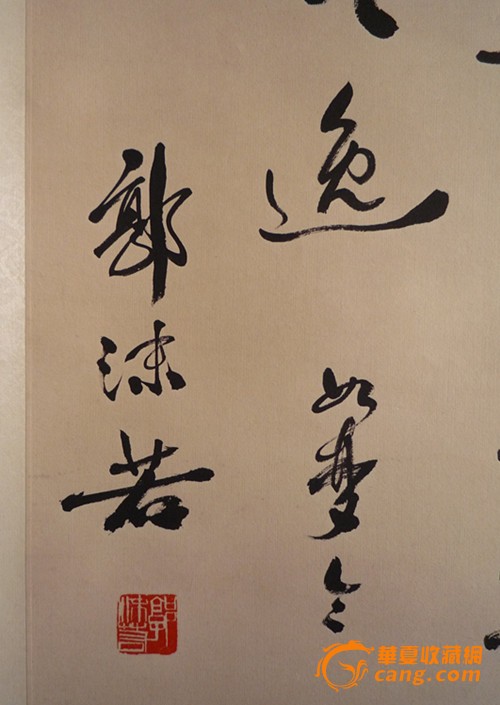 逸
如梦令
郭沫若
郭沫若
華夏收藏網
cang.com